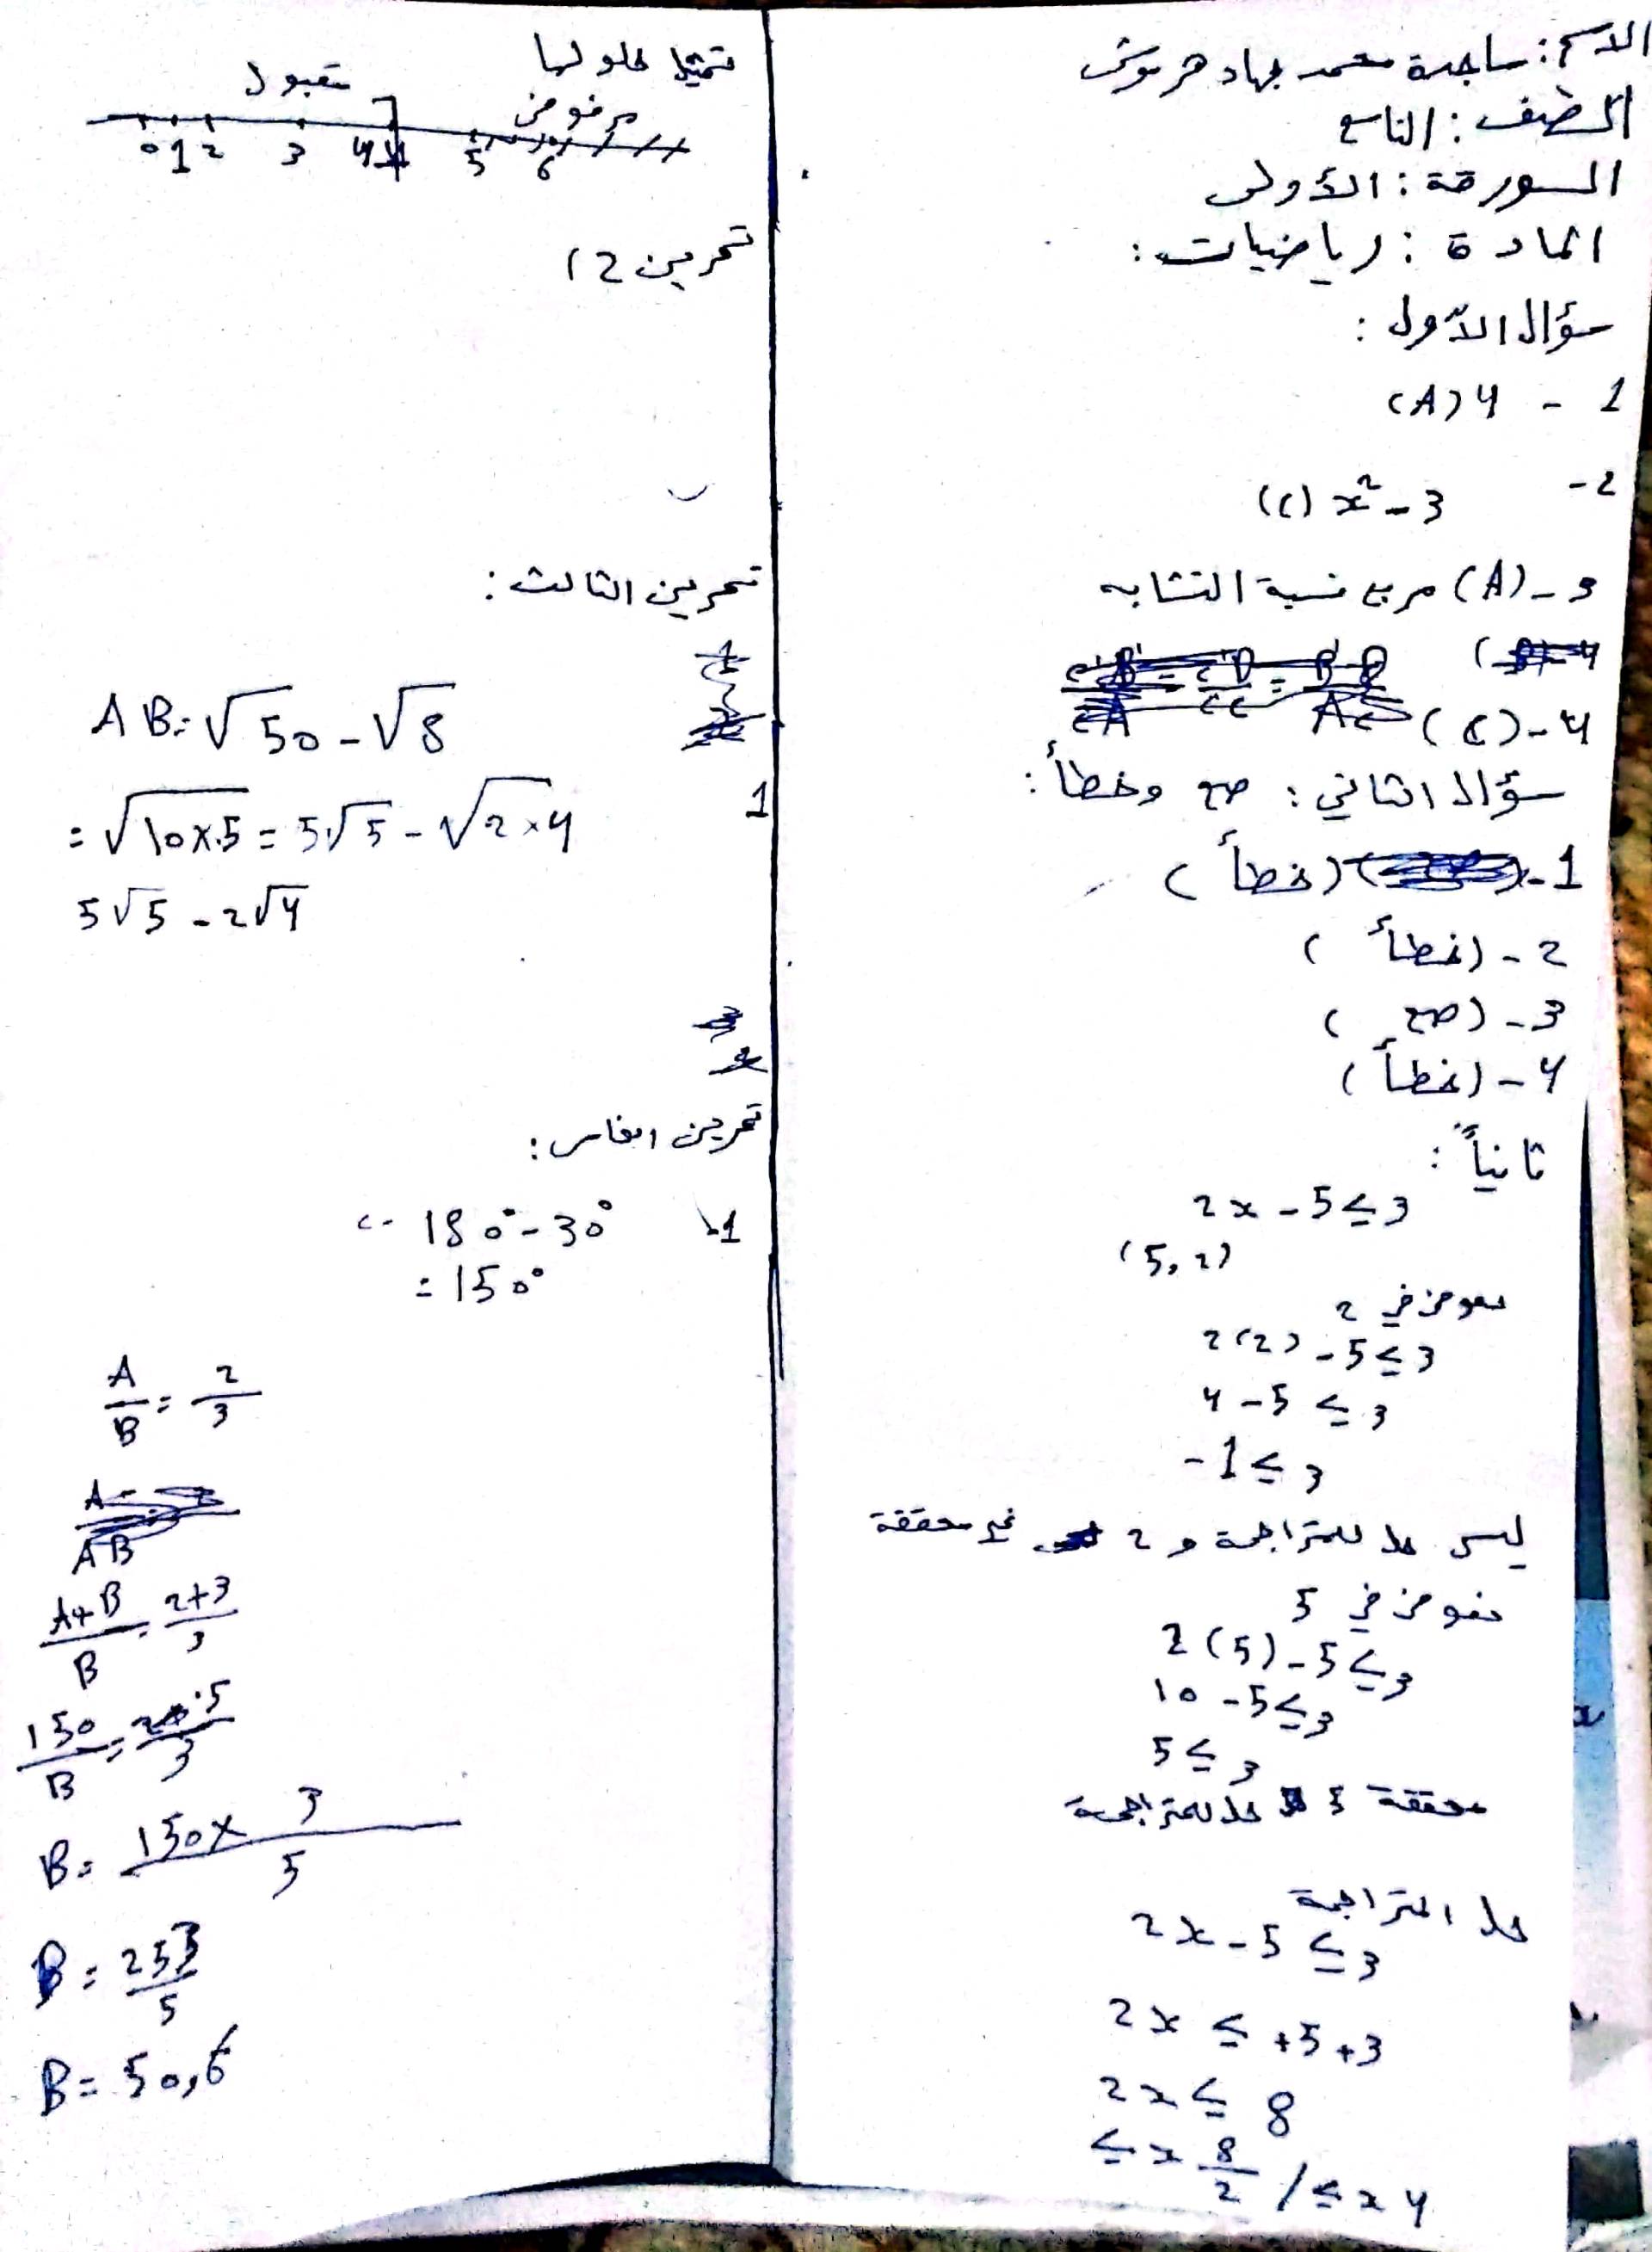 الاسم: ساجدة محمد جهاد هرموش
الصف: التاسع
الورقة: الأولى
المادة: رياضيات:
سؤال الأول:
1 - 4 (A)
2- (c) x² - 3
3 - (A) مربع نسبة التشابه
4 - (c)
سؤال الثاني: صح وخطأ:
1 - (خطأ)
2 - (خطأ)
3 - (صح)
4 - (خطأ)
ثانياً:
2x - 5 ≤ 3
(5, 2)
نعوض في 2
2(2) - 5 ≤ 3
4 - 5 ≤ 3
-1 ≤ 3
ليس حل للمتراجحة و 2 غير محققة
نعوض في 5
2(5) - 5 ≤ 3
10 - 5 ≤ 3
5 ≤ 3
محققة 5 حل للمتراجحة
حل المتراجحة
2x - 5 ≤ 3
2x ≤ +5 +3
2x ≤ 8
≤ x 8/2 / ≤ x 4
تمثيل حلولها
مقبول مرفوض
0 1 2 3 4 5 6
تمرين 2)
تمرين الثالث:
AB = √50 - √8
1 = √10×5 = 5√5 - √2×4
5√5 - 2√4
تمرين الخامس:
1- 180° - 30°
= 150°
A/B = 2/3
A+B/B = 2+3/3
150/B = 5/3
B = 150 × 3/5
B = 253/5
B = 50,6